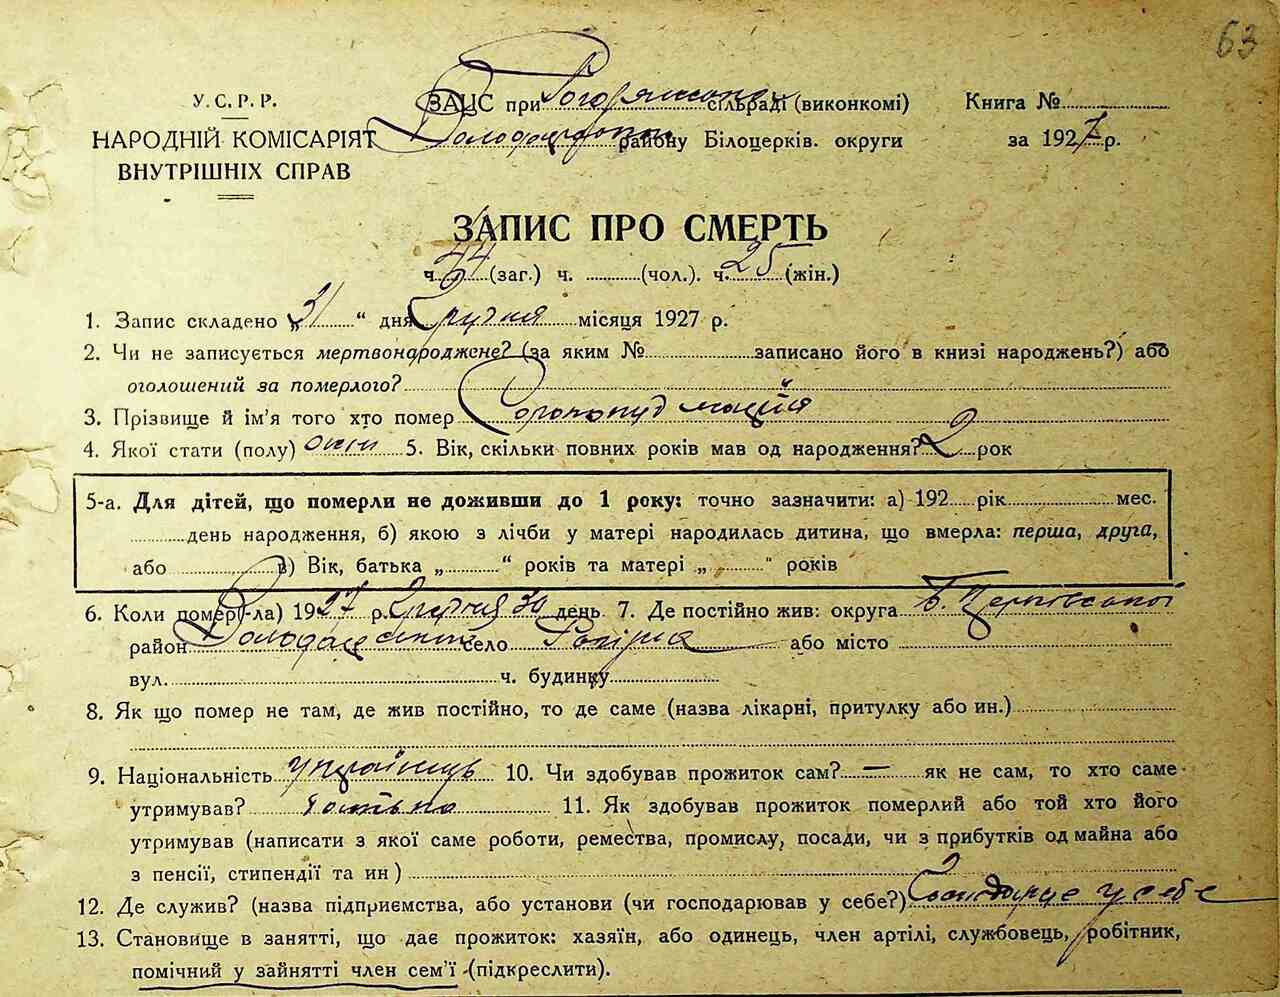 63
У.С.Р.Р.
НАРОДНІЙ КОМІСАРІЯТ
ВНУТРІШНІХ СПРАВ
ЗАЦС при сільраді (виконкомі)
району Білоцерків. округи
Книга №
за 1927 р.
ЗАПИС ПРО СМЕРТЬ
ч. 44 (заг.) ч. (чол.). ч. 25 (жін.)
1. Запис складено „31“ дня Грудня місяця 1927 р.
2. Чи не записується мертвонароджене? (за яким № записано його в книзі народжень?) або
оголошений за померлого?
3. Прізвище й ім'я того хто помер Сорокопуд
4. Якої стати (полу) 5. Вік, скільки повних років мав од народження? 2 рок
5-а. Для дітей, що померли не доживши до 1 року: точно зазначити: а) 192 рік мес.
день народження, б) якою з лічби у матері народилась дитина, що вмерла: перша, друга,
або в) Вік, батька „ “ років та матері „ " років
6. Коли помер(-ла) 1927 р. Грудня 30 день 7. Де постійно жив: округа Б. Церківської
район село або місто
вул. ч. будинку
8. Як що помер не там, де жив постійно, то де саме (назва лікарні, притулку або ин.)
9. Національність українець 10. Чи здобував прожиток сам? — як не сам, то хто саме
утримував? батько 11. Як здобував прожиток померлий або той хто його
утримував (написати з якої саме роботи, ремества, промислу, посади, чи з прибутків од майна або
з пенсії, стипендії та ин )
12. Де служив? (назва підприємства, або установи (чи господарював у себе?) у себе
13. Становище в занятті, що дає прожиток: хазяїн, або одинець, член артілі, службовець, робітник,
помічний у зайнятті член сем'ї (підкреслити).